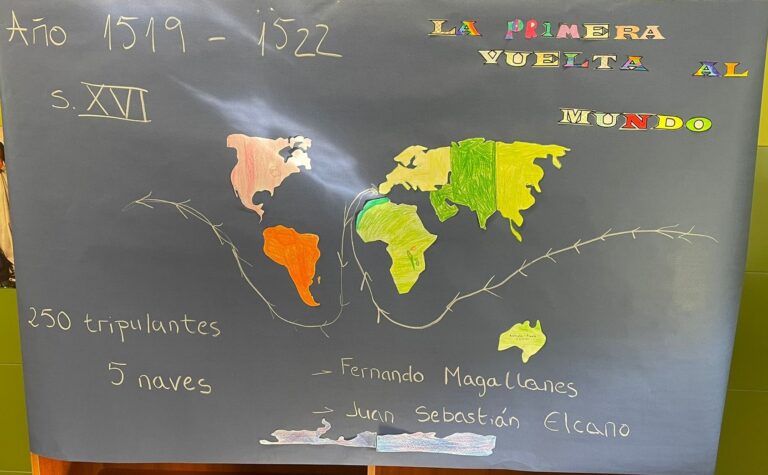 Año 1519 - 1522
LA PRIMERA
VUELTA AL
MUNDO
S. XVI
250 tripulantes
5 naves
→ Fernando Magallanes
→ Juan Sebastián Elcano